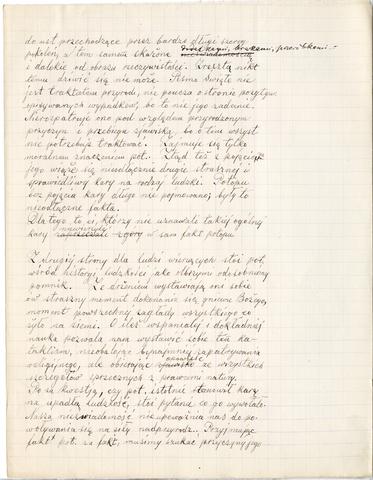 do ust przechodzące przez bardzo długi szereg
pokoleń, a tem samem skażone dodatkami, brakami,
i dalekie od obrazu rzeczywistości. Zresztą nikt
temu dziwić się nie może. Pismo Święte nie
jest traktatem przyrody, nie poucza o stronie
opisywanych wypadków, bo to nie jego zadanie.
Nie rozpatruje ono pod względem przyrodzonym
przyczyn i przebiegu zjawiska, bo o tem
nie potrzebuje traktować. Zajmuje się tylko
moralnem znaczeniem pot. Stąd też z pojęciem
jego wiąże się nieodłącznie drugie strasznej i
sprawiedliwej kary na rodzaj ludzki. Potopu
bez pojęcia kary długo nie pojmowano, były to
nieodłączne fakta.
Dlatego to ci, którzy nie uznawali takiej ogólnej
kary nie wierzyli zaprzeczali z góry w sam fakt potopu
Z drugiej strony dla ludzi wierzących stoi pot.
wśród historyi ludzkości jako olbrzymi odosobniony
pomnik. Ze drżeniem wystawiają oni sobie
ów straszny moment dokonania się gniewu Bożego,
moment powszechnej zagłady wszystkiego co
żyło na ziemi. O ileż wspanialej i dokładniej
nauka pozwala nam wystawić sobie ten ka-
taklizm, nie obalając bynajmniej zapatrywania
religijnego, ale obierając zjawisko ze wszystkich
szczegółów sprzecznych z prawami natury.
Po za kwestyą, czy pot. istotnie stanowił karę
na upadłą ludzkość, stoi pytanie co go wywołało.
Nasza nieświadomość nie upoważnia nas do po-
woływania się na siły nadprzyrodz. Przyjmując
fakt pot. za fakt, musimy szukać przyczyny jego